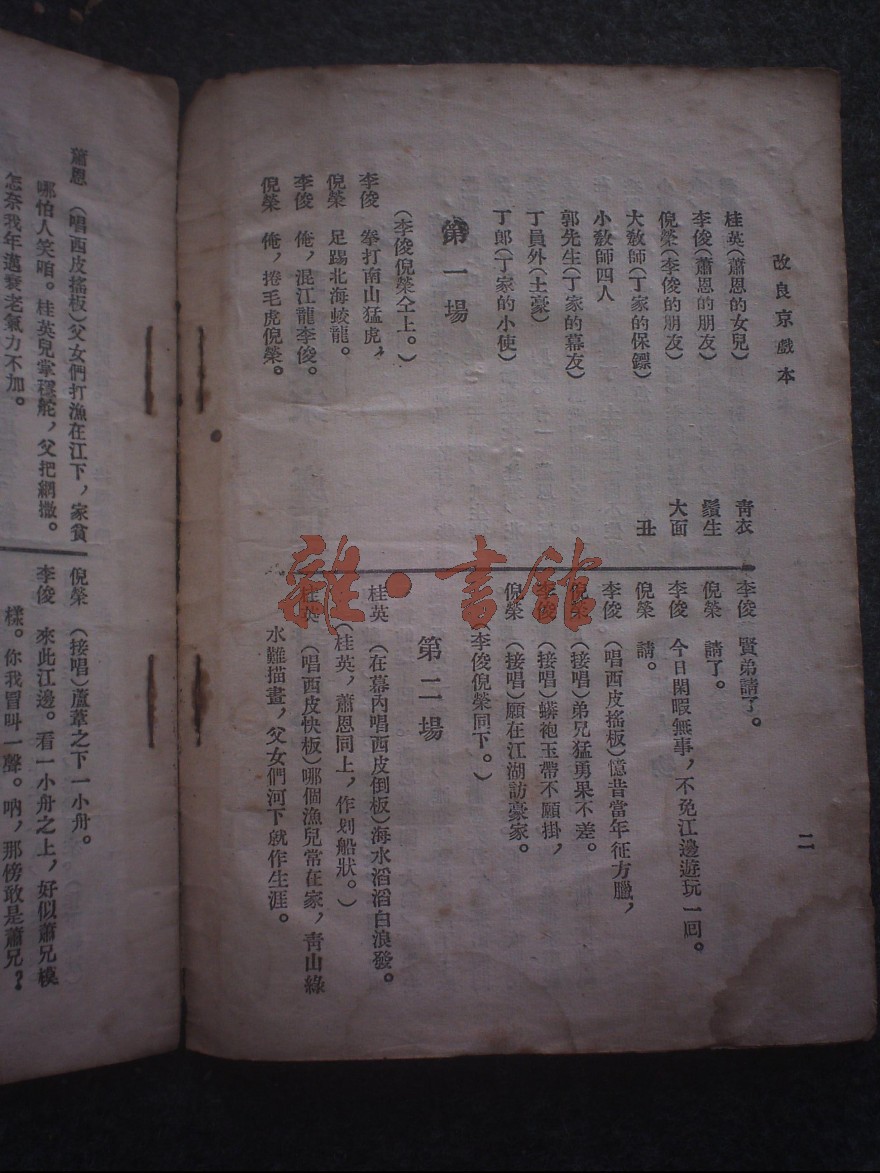 改良京戲本
二
桂英(蕭恩的女兒) 青衣
李俊(蕭恩的朋友) 鬚生
倪榮(李俊的朋友) 大面
大教師(丁家的保鏢) 丑
小教師四人
郭先生(丁家的幕友)
丁員外(土豪)
丁郎(丁家的小使)
第一場
(李俊倪榮仝上。)
李俊 拳打南山猛虎,
倪榮 足踢北海蛟龍。
李俊 俺,混江龍李俊。
倪榮 俺,捲毛虎倪榮。
李俊 賢弟請了。
倪榮 請了。
李俊 今日閑暇無事,不免江邊遊玩一囘。
倪榮 請。
李俊 (唱西皮搖板)憶昔當年征方臘,
倪榮 (接唱)弟兄猛勇果不差。
李俊 (接唱)蟒袍玉帶不願掛,
倪榮 (接唱)願在江湖訪豪家。
(李俊倪榮同下。)
第二場
桂英 (在幕內唱西皮倒板)海水滔滔白浪發。
(桂英,蕭恩同上,作划船狀。)
桂英 (唱西皮快板)哪個漁兒常在家,青山綠
水難描畫,父女們河下就作生涯。
蕭恩 (唱西皮搖板)父女們打漁在江下,家貧
哪怕人笑咱。桂英兒掌穩舵,父把網撒。
怎奈我年邁衰老氣力不加。
倪榮 (接唱)蘆葦之下一小舟。
李俊 來此江邊。看一小舟之上,好似蕭兄模
樣。你我冒叫一聲。吶,那傍敢是蕭兄?
雜·書館